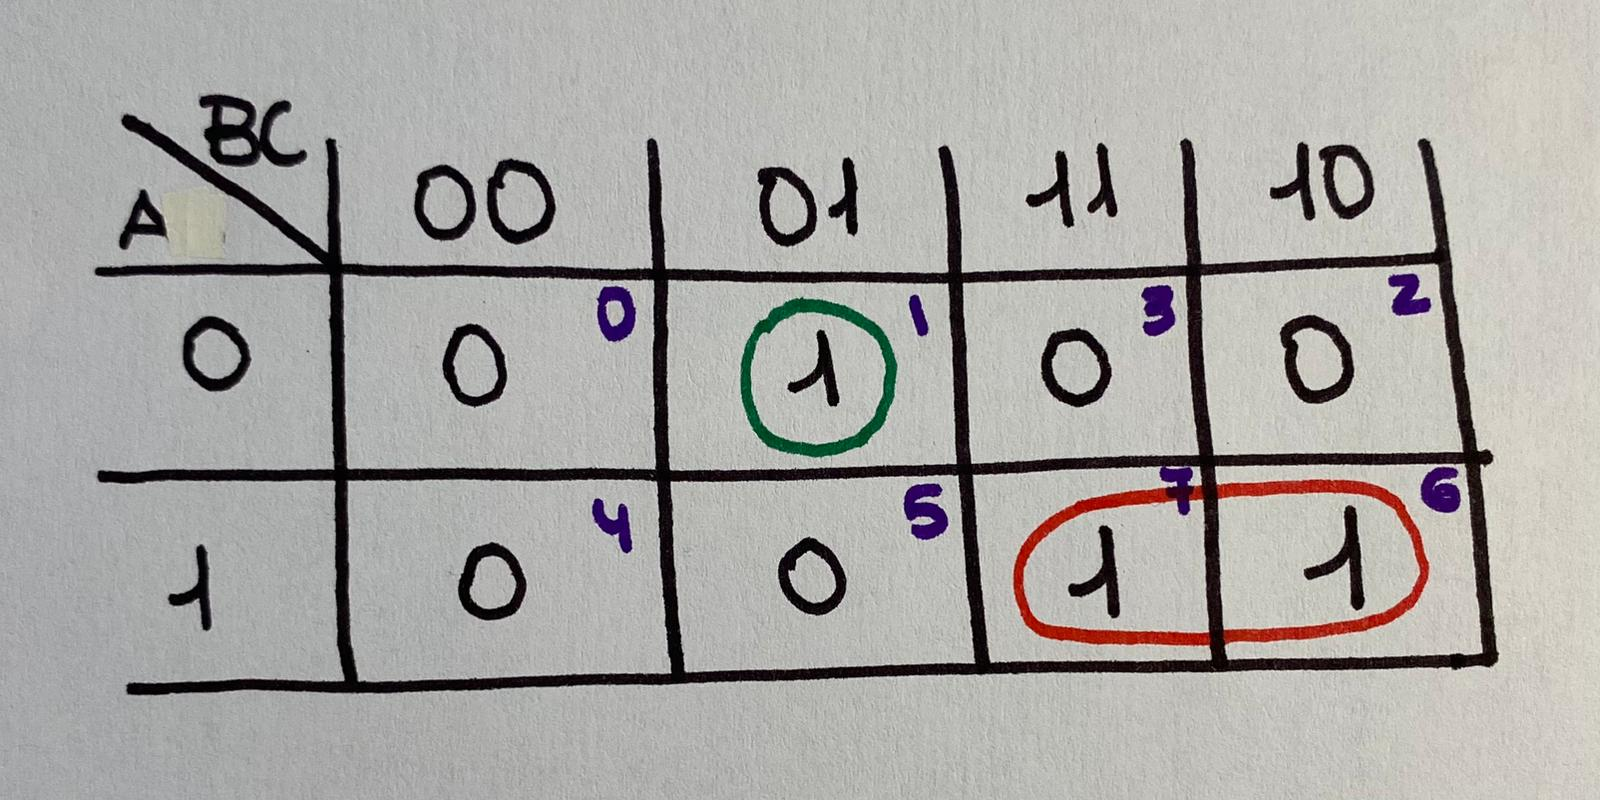 BC
A 00 01 11 10
0 0 0 1 1 0 3 0 2
1 0 4 0 5 1 7 1 6